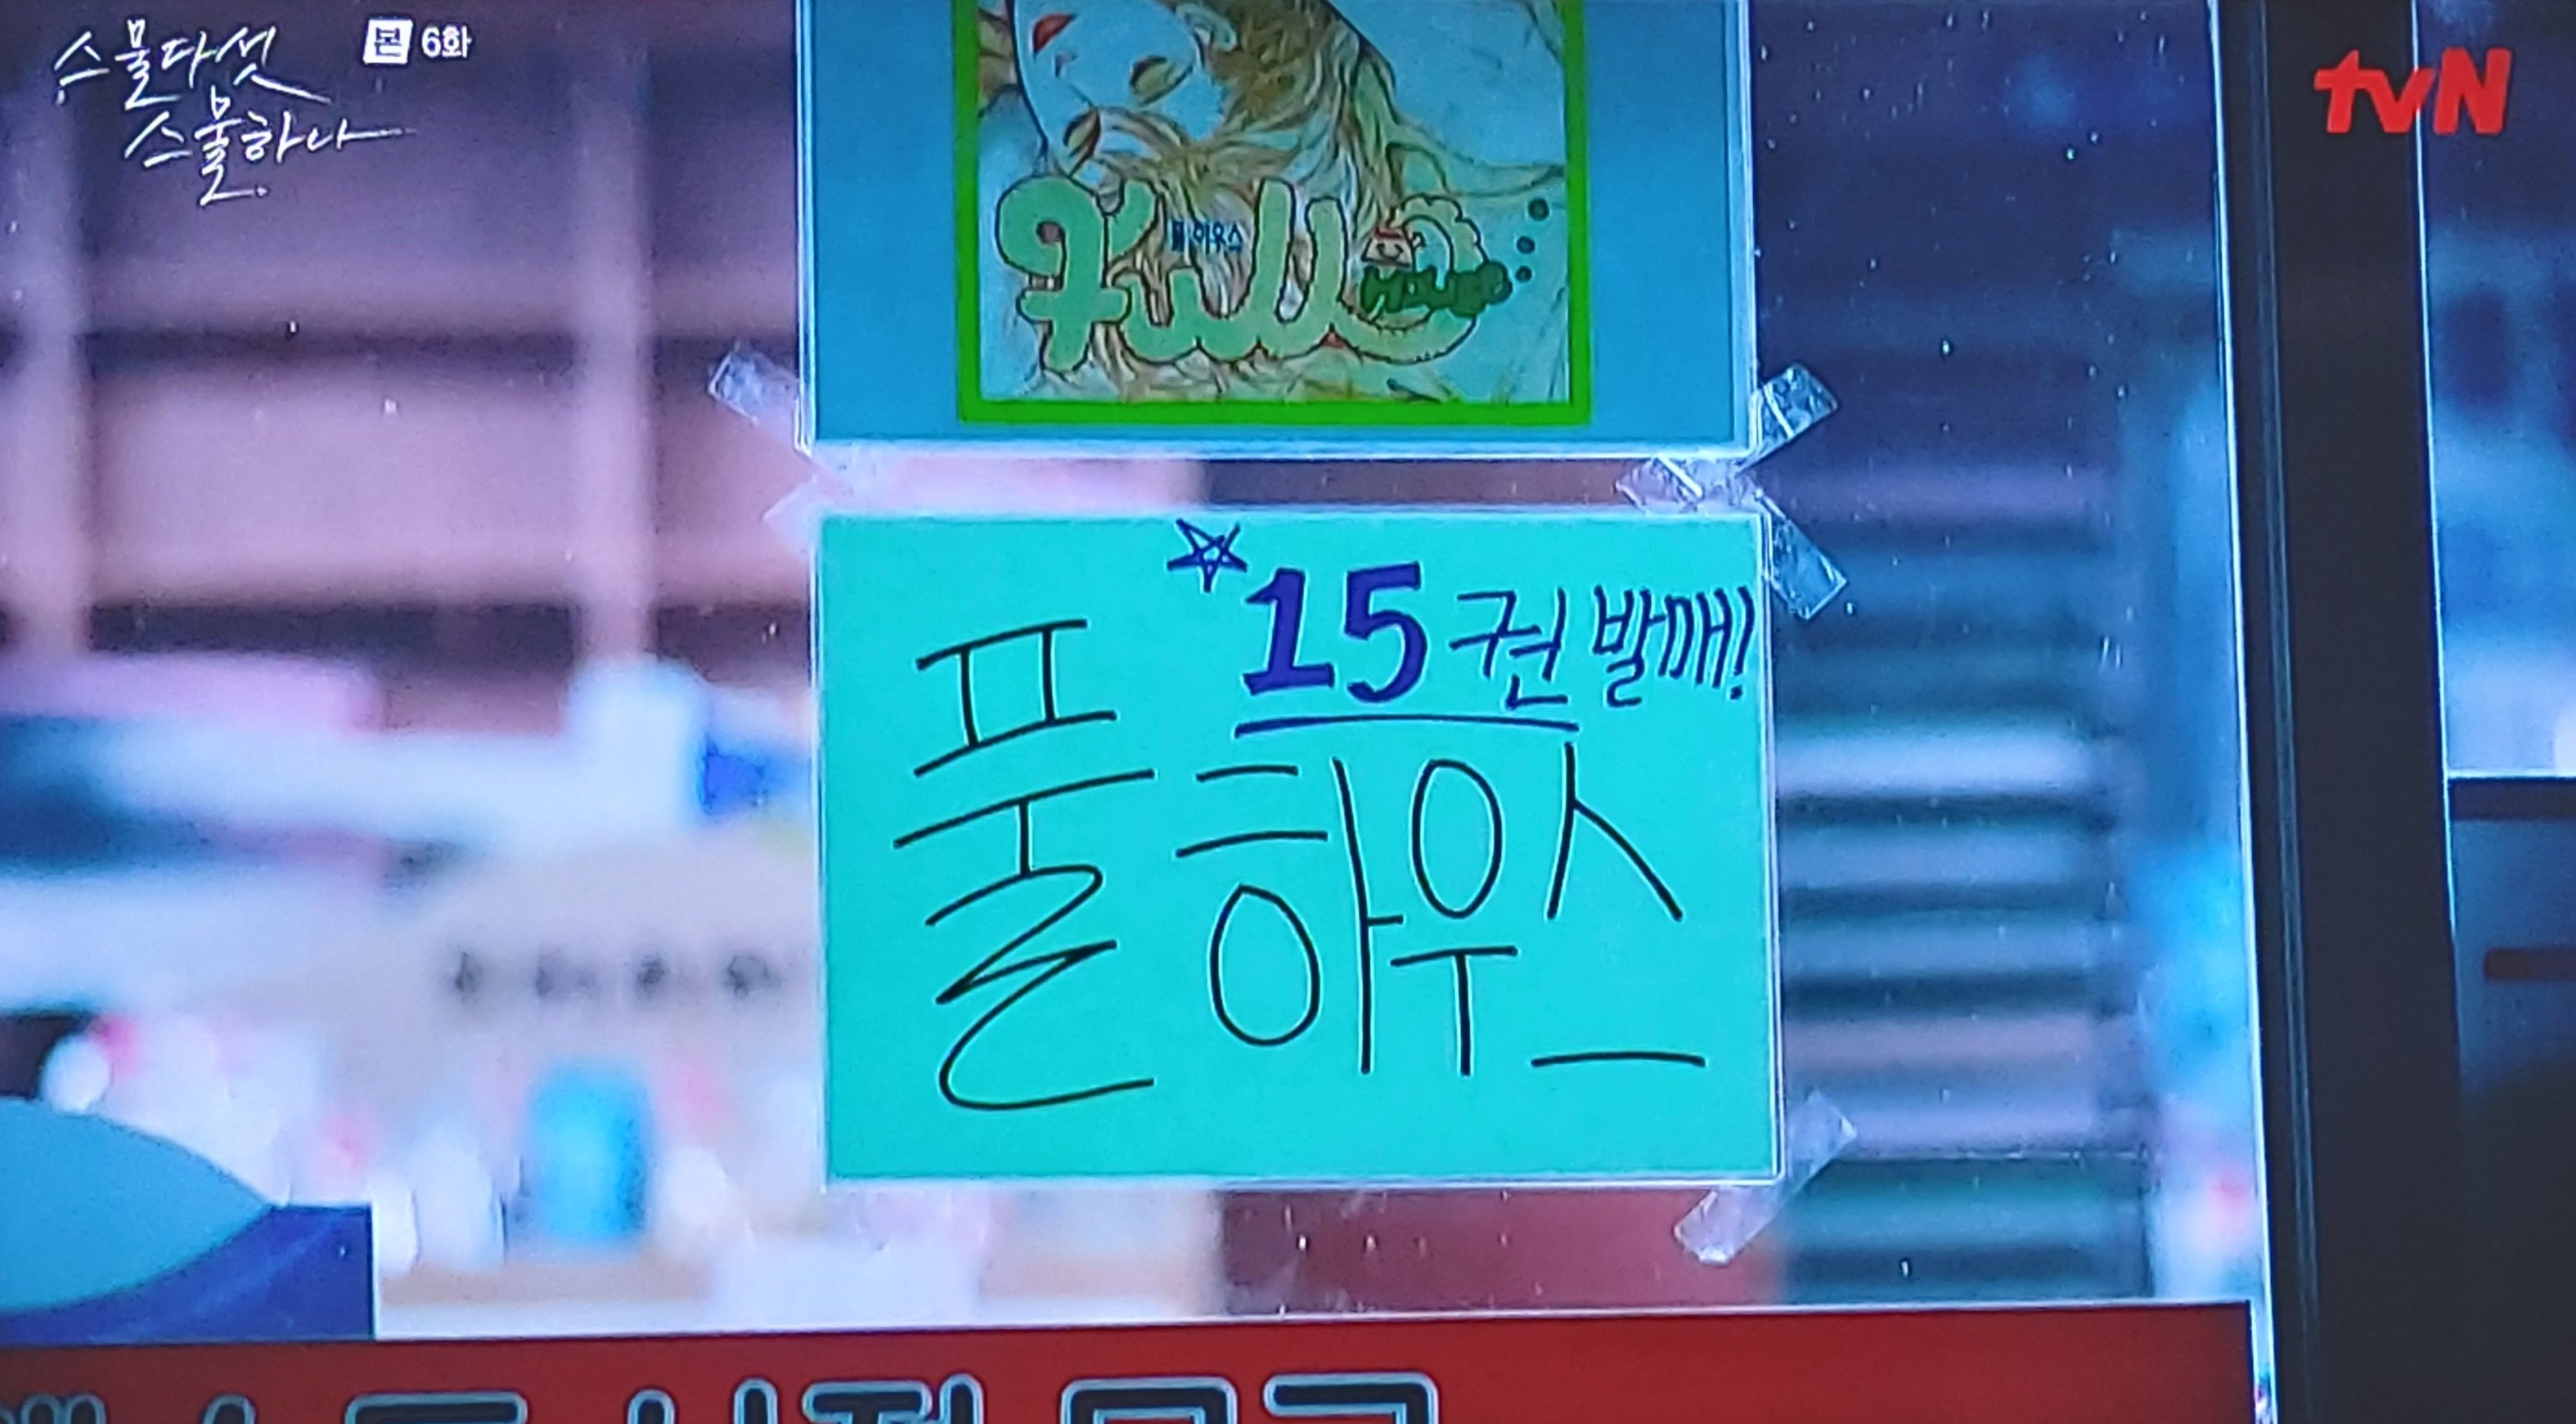 스물다섯
스물하나
본 6화
tvN
풀하우스
Full
House
15권 발매!
풀하우스